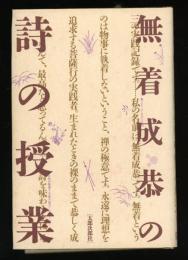 無着成恭の
詩の授業
三年実践記録です。私の名前は無着成恭です。無着という
のは物事に執着しないということ、禅の極意です。永遠に理想を
追求する菩薩行の実践者、生まれたときの裸のままで恭しく成
太郎次郎社